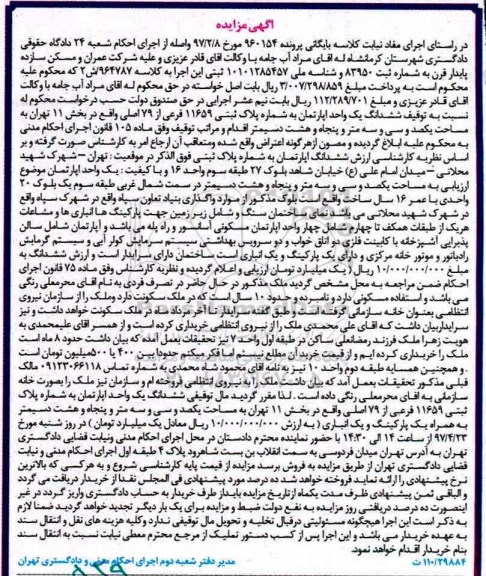 آگهی مزایده
در راستای اجرای مفاد نیابت کلاسه بایگانی پرونده ۹۶۰۱۵۴ مورخ ۹۷/۲/۸ واصله از اجرای احکام شعبه ۲۴ دادگاه حقوقی
دادگستری شهرستان کرمانشاه له آقای مراد آب جامه با وکالت آقای قادر عزیزی و علیه شرکت عمران و مسکن سازده
پایدار قرن به شماره ثبت ۸۳۹۵۰ و شناسه ملی ۱۰۱۰۱۲۸۵۴۵۷ ثبتی این اجرا به کلاسه ۹۶۴۷۸۷/ش۲ که محکوم علیه
محکوم است به پرداخت مبلغ ۳/۰۰۷/۲۹۸/۸۵۹ ریال بابت اصل خواسته در حق محکوم له آقای مراد آب جامه با وکالت
آقای قادر عزیزی و مبلغ ۱۱۲/۲۸۹/۷۰۱ ریال بابت نیم عشر اجرایی در حق صندوق دولت حسب درخواست محکوم له
نسبت به توقیف ششدانگ یک واحد آپارتمان به شماره پلاک ثبتی ۱۱۶۵۹ فرعی از ۷۹ اصلی واقع در بخش ۱۱ تهران به
مساحت یکصد و سی و سه متر و پنجاه و هشت دسیمتر اقدام و مراتب توقیف وفق ماده ۱۰۵ قانون اجرای احکام مدنی
به محکوم علیه ابلاغ گردیده و مصون از هرگونه اعتراض واقع شده ومتعاقب آن ارجاع امر به کارشناس صورت گرفته و بر
اساس نظریه کارشناسی ارزش ششدانگ آپارتمان به شماره پلاک ثبتی فوق الذکر در موقعیت : تهران – شهرک شهید
محلاتی – میدان امام علی (ع) خیابان شاهد بلوک ۲۷ طبقه سوم واحد ۱۶ و با کیفیت : یک واحد آپارتمان موضوع
ارزیابی به مساحت یکصد و سی و سه متر و پنجاه و هشت دسیمتر در سمت شمال غربی طبقه سوم یک بلوک ۲۰
واحدی با عمر ۱۶ سال ساخت واقع است بلوک مذکور از موارد واگذاری بنیاد تعاون سپاه واقع در شهرک سپاه واقع
در شهرک شهید محلاتی می باشد نمای ساختمان سنگ و شامل زیرزمین جهت پارکینگ ها انباری ها و مشاعات
هریک از طبقات همکف تا چهارم شامل چهار واحد آپارتمان مسکونی آسانسور و راه پله می باشد و آپارتمان شامل سالن
پذیرایی آشپزخانه با کابینت فلزی دو اتاق خواب و دو سرویس بهداشتی سیستم سرمایش کولر آبی و سیستم گرمایش
رادیاتور و موتور خانه مرکزی و دارای یک پارکینگ و یک انباری است ساختمان دارای سرایدار است و ارزش ششدانگ به
مبلغ ۱۰/۰۰۰/۰۰۰/۰۰۰ ریال ( یک میلیارد تومان) ارزیابی و اعلام گردیده و نظریه کارشناس وفق ماده ۷۵ قانون اجرای
احکام ضمن مراجعه به محل مشخص گردید ملک مذکور در حال حاضر در تصرف فردی به نام آقای محرمعلی رنگی
می باشد و استفاده مسکونی دارد و نامبرده و حدود ۱۰ سال است که در ملک سکونت دارد وملک را از سازمان نیروی
انتظامی بعنوان خانه سازمانی گرفته است و طبق گفته سرایدار تا آخر مرداد ماه در ملک سکونت خواهد داشت و نیز
سرایداربیان داشت که آقای علی محمدی ملک را از نیروی انتظامی خریداری کرده است و از همسر آقای علیمحمدی به
هویت زهرا ملک فرزند رمضانعلی ساکن در طبقه اول واحد ۷ نیز تحقیقات بعمل آمده که بیان داشت حدود ۸ ماه است
ملک را خریداری کرده ایم و از قیمت خرید آن مطلع نیستم اما فکر میکنم حدودا بین ۴۰۰ یا ۵۰۰ میلیون تومان است
. و همچنین همسایه طبقه دوم واحد ۱۰ نیز به نامه آقای محمود شا محمدی به شماره تماس ۰۹۱۲۳۰۶۶۱۱۸ مالک
قبلی مذکور تحقیقات بعمل آمد که بیان داشت ملک را به نیروی انتظامی فروخته ام و سازمان نیز ملک را بصورت خانه
سازمانی به آقای محرمعلی رنگی داده است . لذا مقرر گردید مال توقیفی ششدانگ یک واحد آپارتمان به شماره پلاک
ثبتی ۱۱۶۵۹ فرعی از ۷۹ اصلی واقع در بخش ۱۱ تهران به مساحت یکصد و سی و سه متر و پنجاه و هشت دسیمتر
به همراه یک پارکینگ و یک انباری ( به ارزش ۱۰/۰۰۰/۰۰۰/۰۰۰ ریال معادل یک میلیارد تومان ) در روز شنبه مورخ
۹۷/۴/۲۳ از ساعت ۱۴ الی ۱۴:۳۰ با حضور نماینده محترم دادستان در محل اجرای احکام مدنی ونیابت قضایی دادگستری
تهران به آدرس تهران میدان فردوسی به سمت انقلاب بن بست شاهرود پلاک ۴ طبقه اول اجرای احکام مدنی و نیابت
قضایی دادگستری تهران از طریق مزایده به فروش برسد مزایده از قیمت پایه کارشناسی شروع و به هرکسی که بالاترین
نرخ پیشنهادی را ارائه نماید فروخته خواهد شد ده درصد مورد پیشنهادی فی المجلس نقدا از خریدار دریافت می گردد
و الباقی ثمن پیشنهادی ظرف مدت یکماه ازتاریخ مزایده بایداز طرف خریدار به حساب دادگستری واریز گردد در غیر
اینصورت ده درصد دریافتی روز مزایده به نفع دولت ضبط و مزایده برای یک بار دیگر تجدید خواهد گردید ضمنا لازم
به ذکر است این اجرا هیچگونه مسئولیتی درقبال تخلیه و تحویل مال توقیفی ندارد وکلیه هزینه های نقل و انتقال سند
به عهده خریدار می باشد و این اجرا پس از کسب دستور تملیک از مرجع محترم معطی نیابت نسبت به انتقال سند
بنام خریدار اقدام خواهد نمود.
۱۱۰/۲۹۸۸۴ ت مدیر دفتر شعبه دوم اجرای احکام مدنی و دادگستری تهران